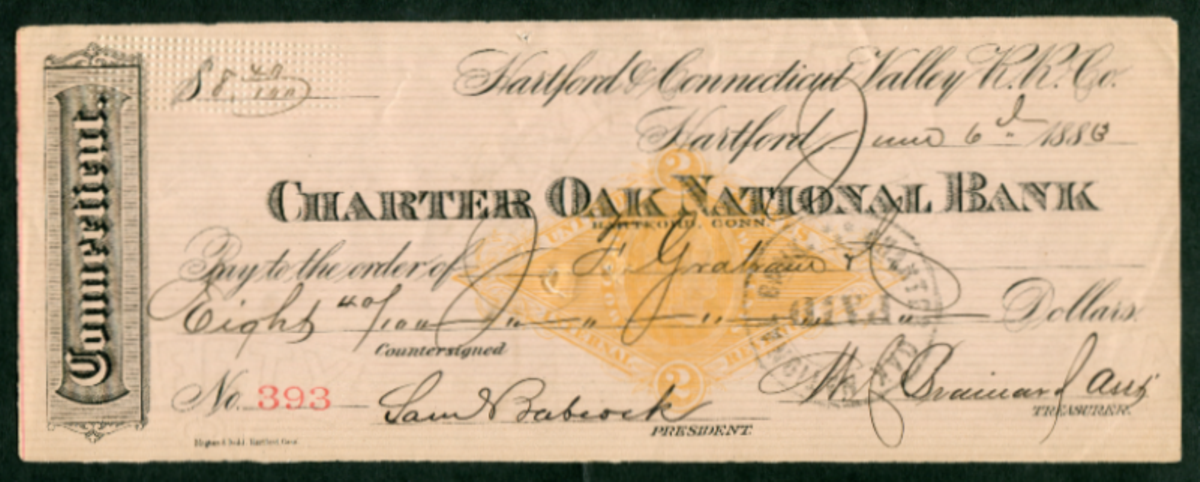 Connecticut.
$ 8 40/100
Hartford & Connecticut Valley R.R. Co.
Hartford, June 6th 1883
CHARTER OAK NATIONAL BANK
HARTFORD, CONN.
Pay to the order of F. Graham
Eight 40/100 " " " " " Dollars.
Countersigned
No. 393
Sam Babcock
PRESIDENT.
W J Brainard Asst
TREASURER.
UNITED
INTERNAL
2
2
PAID